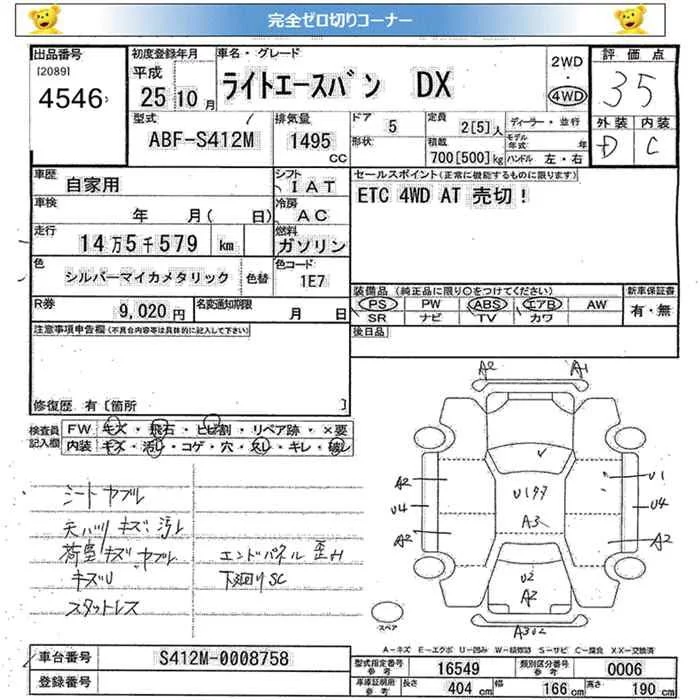 完全ゼロ切りコーナー
出品番号 初度登録年月 車名・グレード 2WD 評価点
[2089] 平成 ライトエースバン DX ・ 35
4546 25年10月 4WD
型式 排気量 ドア 5 定員 2[5]人 ディーラー・並行 外装 内装
ABF-S412M 1495 CC 形状 積載 700[500]kg モデル年式 年 ハンドル 左・右 D C
車歴 自家用 シフト IAT セールスポイント(正常に機能するものに限ります)
車検 年 月( 日) 冷房 AC ETC 4WD AT 売切!
走行 14万5千579 km 燃料 ガソリン
色 シルバーマイカメタリック 色替 色コード 1E7
装備品(純正品に限り○をつけてください) 新車保証書
R券 9,020円 名変通知期限 月 日 PS PW ABS エアB AW 有・無
SR ナビ TV カワ
注意事項申告欄(不具合内容等は具体的に記入して下さい) 後日品
修復歴 有[箇所 ]
検査員記入欄 FW キズ・飛石・ヒビ割・リペア跡・×要
内装 キズ・汚レ・コゲ・穴・スレ・キレ・破レ
A2 A1
A2 U1
U4 U4
A2 A2
A3
U2
A2
シートヤブレ
天バリキズ、汚レ
荷室キズ、ヤブレ エンドパネル 歪み
キズU 下廻りSC
スタットレス
スペア
A-キズ E-エクボ U-凹み W-補修跡 S-サビ C-腐食 XX-交換済
車台番号 S412M-0008758 型式指定番号 参考 16549 類別区分番号 参考 0006
登録番号 車庫証明用 参考 長さ 404 cm 幅 166 cm 高さ 190 cm